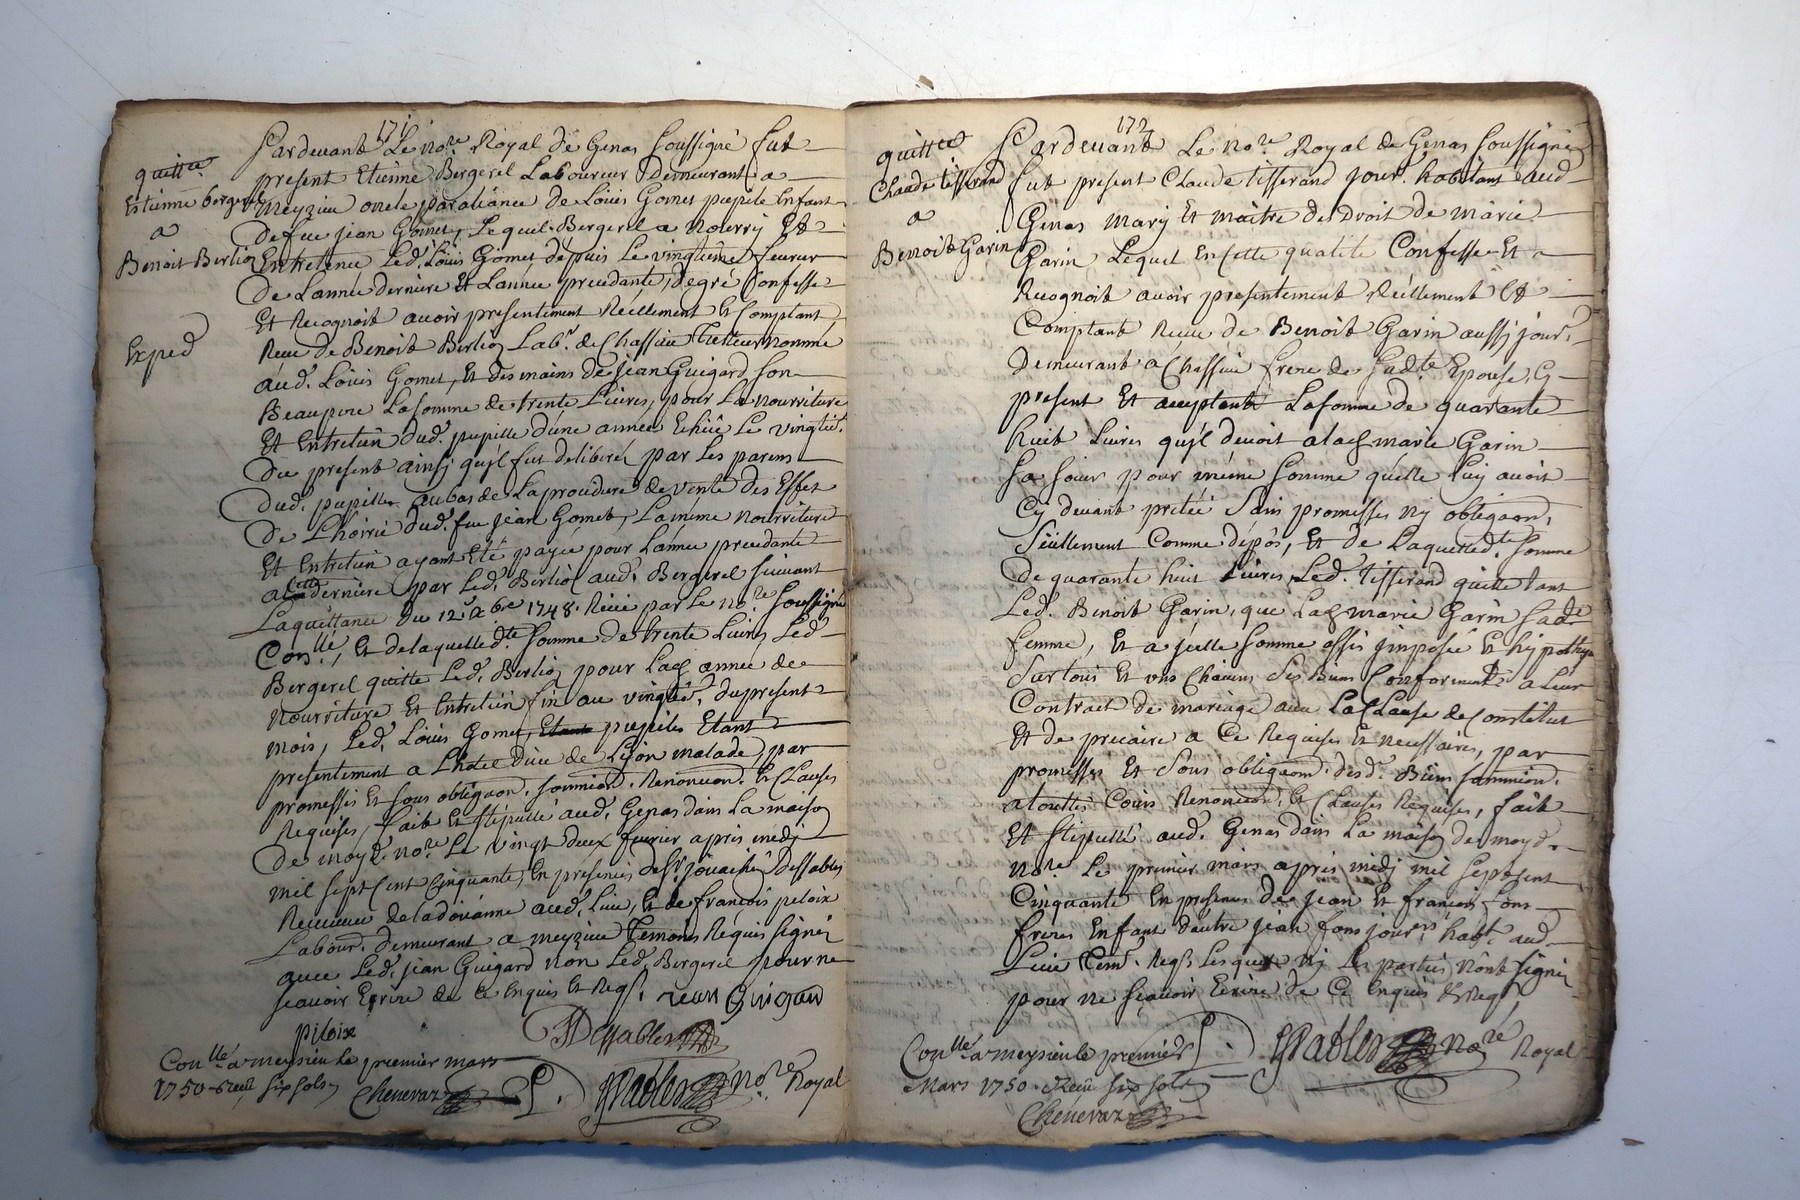 171
quittce
Estienne bergerel
a
Benoit Berlioz
Exped
Pardevant Le nore Royal de Genas soussigné fut
present Etienne Bergerel Laboureur Demeurant a
Meyzieu oncle par aliance de Loüis Gomet pupile Enfant
de feu jean Gomet, Lequel Bergerel a Nourry Et
Entretenu Led. Loüis Gomet depuis Le vingtieme feuvrier
de Lannee derniere Et Lannee precedante, de gré Confesse
Et Recognoit avoir presentement Réellement Et Comptant
Receu de Benoit Berlioz Labr. de Chassieu Tutteur nommé
aud. Loüis Gomet, Et des mains de jean Guigard son
Beaupere La somme de trente Livres, pour La nourriture
Et Entretien dud. pupille d'une annee Echüe Le vingtie.
du present ainsy quil fut deliberé par Les parens
dud. pupille au bas de La procedure de vente des Effets
de Lhoirie dud. feu jean Gomet, La meme nourriture
Et Entretien ayant Eté payée pour Lannee precedante
a cette derniere par Led. Berlioz aud. Bergerel suivant
La quittance du 12e xbre 1748. Receu par Le nore soussigné
Conllé, Et de laquelle dte somme de trente Livres Led.
Bergerel quitte Led. Berlioz pour Lad. annee de
nourriture Et Entretien fini au vingtie. du present
mois, Led. Loüis Gomet, pupiles Etant
presentement a Lhotel Dieu de Lyon malade, par
promesses Et sous obligaon. soumion. Renoncion. Et Clauses
Requises, fait Et stipullé aud. Genas dans La maison
De moyd. nore Le vingt deux feuvrier apres midy
mil sept Cent Cinquante, En presences de Sr. joüachin Dessables
Receveur de la doüanne aud. Lieu, Et de françois peloix
Labour. demeurant a meyzieu Temoins Requis signés
avec Led. jean Guigard non Led. Bergerel pour ne
sçavoir Ecrire de Ce Enquis Et Reqs. jean Guigard
piloix
JDessables
Conllé a meysieu le premier mars
1750 Receu six sols
Chenevaz
nore Royal
172
quittce
Claude tisserand
a
Benoit Garin
Pardevant Le nore Royal de Genas soussigné
fut present Claude tisserand jour. habitant aud.
Genas mary Et maitre des Droit de marie
Garin Lequel En cette qualité Confesse Et
Recognoit avoir presentement Réellement Et
Comptant Receu de Benoit Garin aussy jour.
Demeurant a Chassieu frere de Sadte Epouse, Cy
present Et acceptant La somme de quarante
huit Livres qu'il devoit a lad. marie Garin
sa soeur pour méme somme qu'elle Luy avoit
Cy devant pretée sans promesses ny obligaon,
seullement Comme dépôs, Et de Laquelled.te somme
de quarante huit Livres, Led. Tisserand quitte tant
Led. Benoit Garin, que Lad. marie Garin sadte
femme, Et a jcelle somme assis jmposée Et hypothq.
sur tous Et uns Chacuns ses Biens Conforment a Leur
Contrait de mariage avec La Clause de Constitut
Et de precaire a Ce Requises Et necessaires, par
promesses Et sous obligaon. desd. Biens soummion.
a touttes Cours Renoncion. Et Clauses Requises, fait
Et stipullé aud. Genas dans La maison de moyd.
nore Le premier mars apres midy mil septcent
Cinquante En presences de jean Et françois fons
freres Enfant d'autre jean fons jourers habt. aud.
Lieu Tem. Reqs. Lesquels Ny Les parties N'ont signés
pour ne sçavoir Ecrire de Ce Enquis & Reqs.
nore Royal
Conllé a meysieu le premier
Mars 1750. Receu six sols
Chenevaz